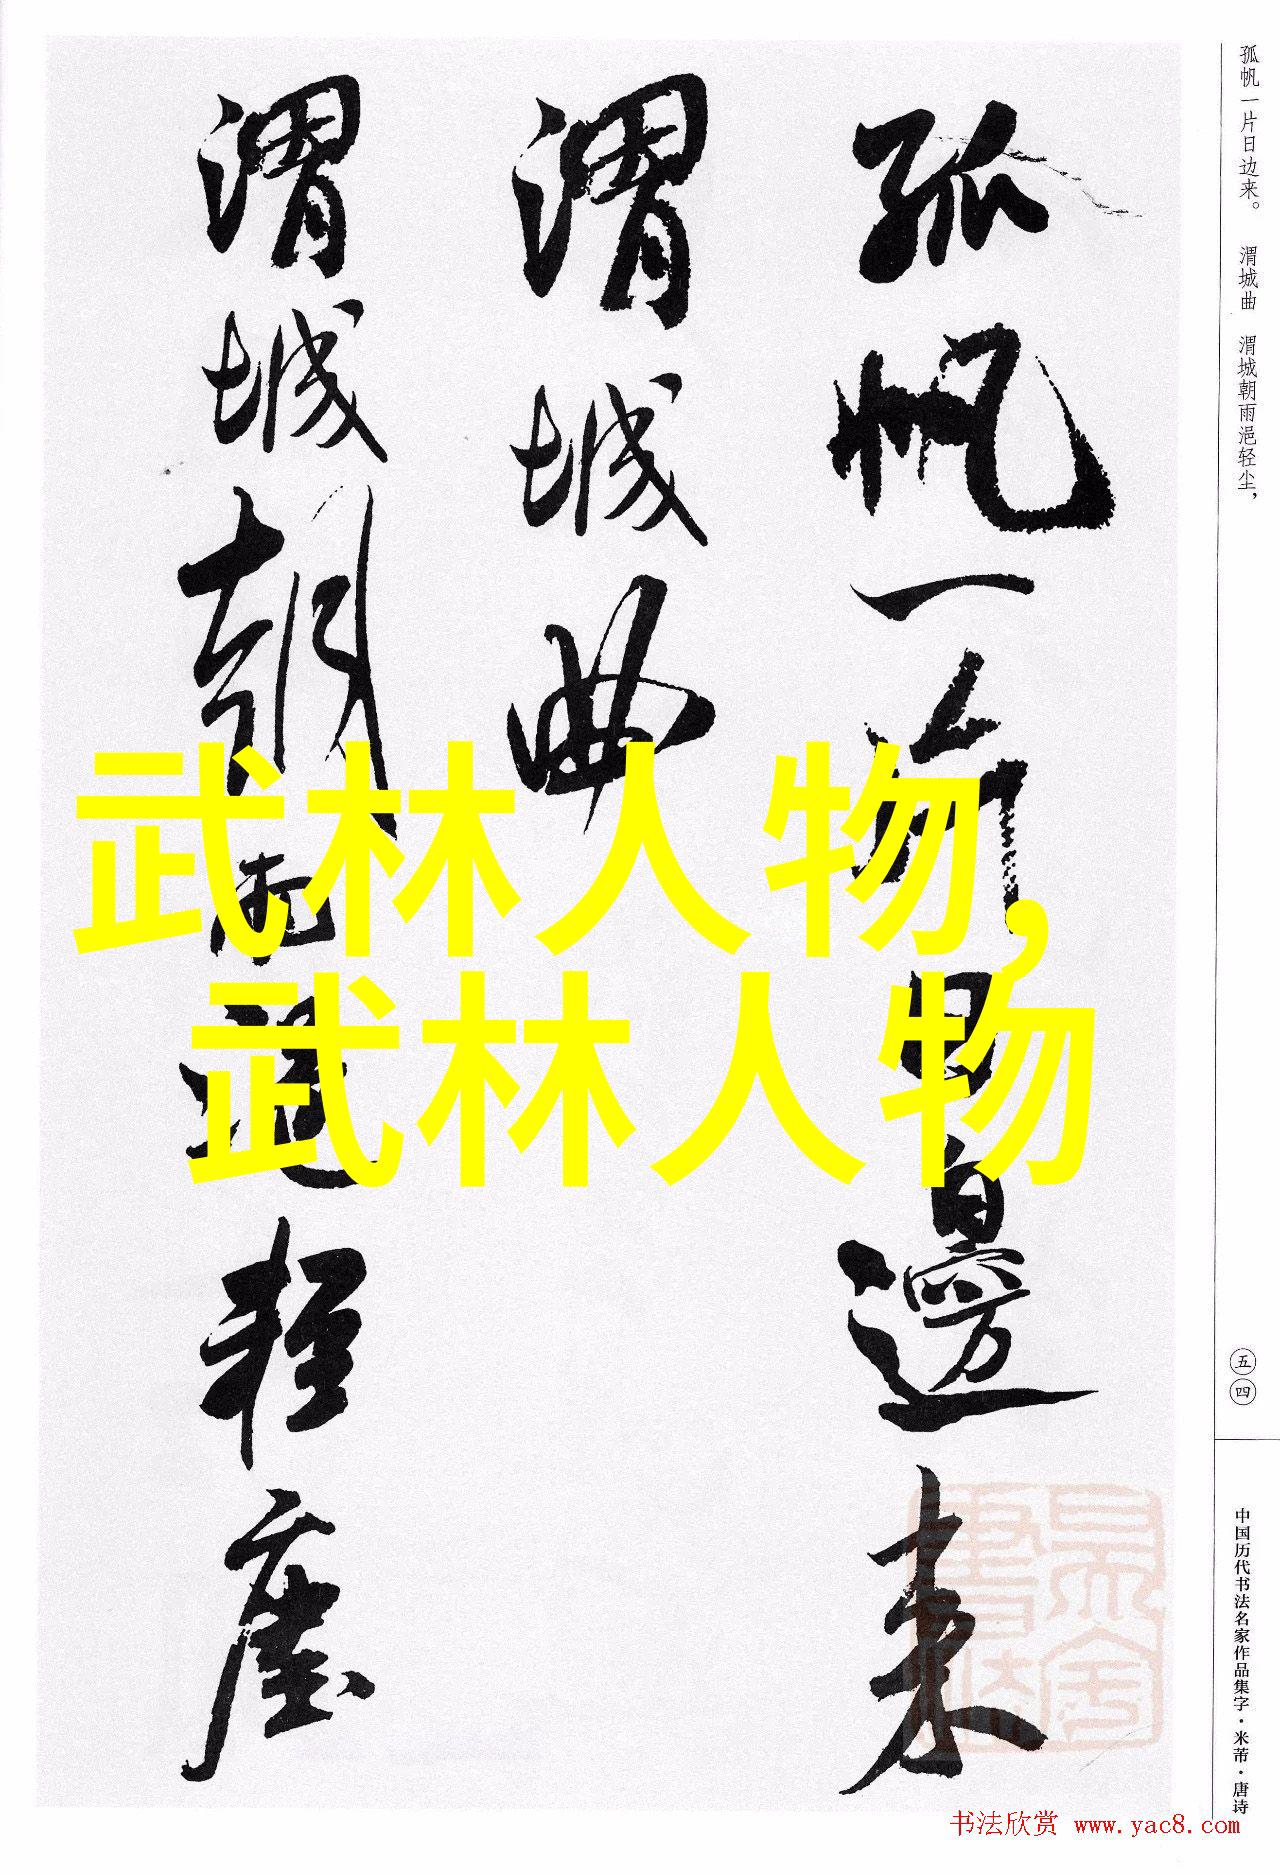 孤帆一片日边来。 渭城曲 渭城朝雨浥轻尘，
孤帆一片日邊来
渭城曲
渭城朝雨浥轻塵
武林人物,
武林人物
五四
中国历代书法名家作品集字·米芾·唐诗
书法欣赏 www.yac8.com